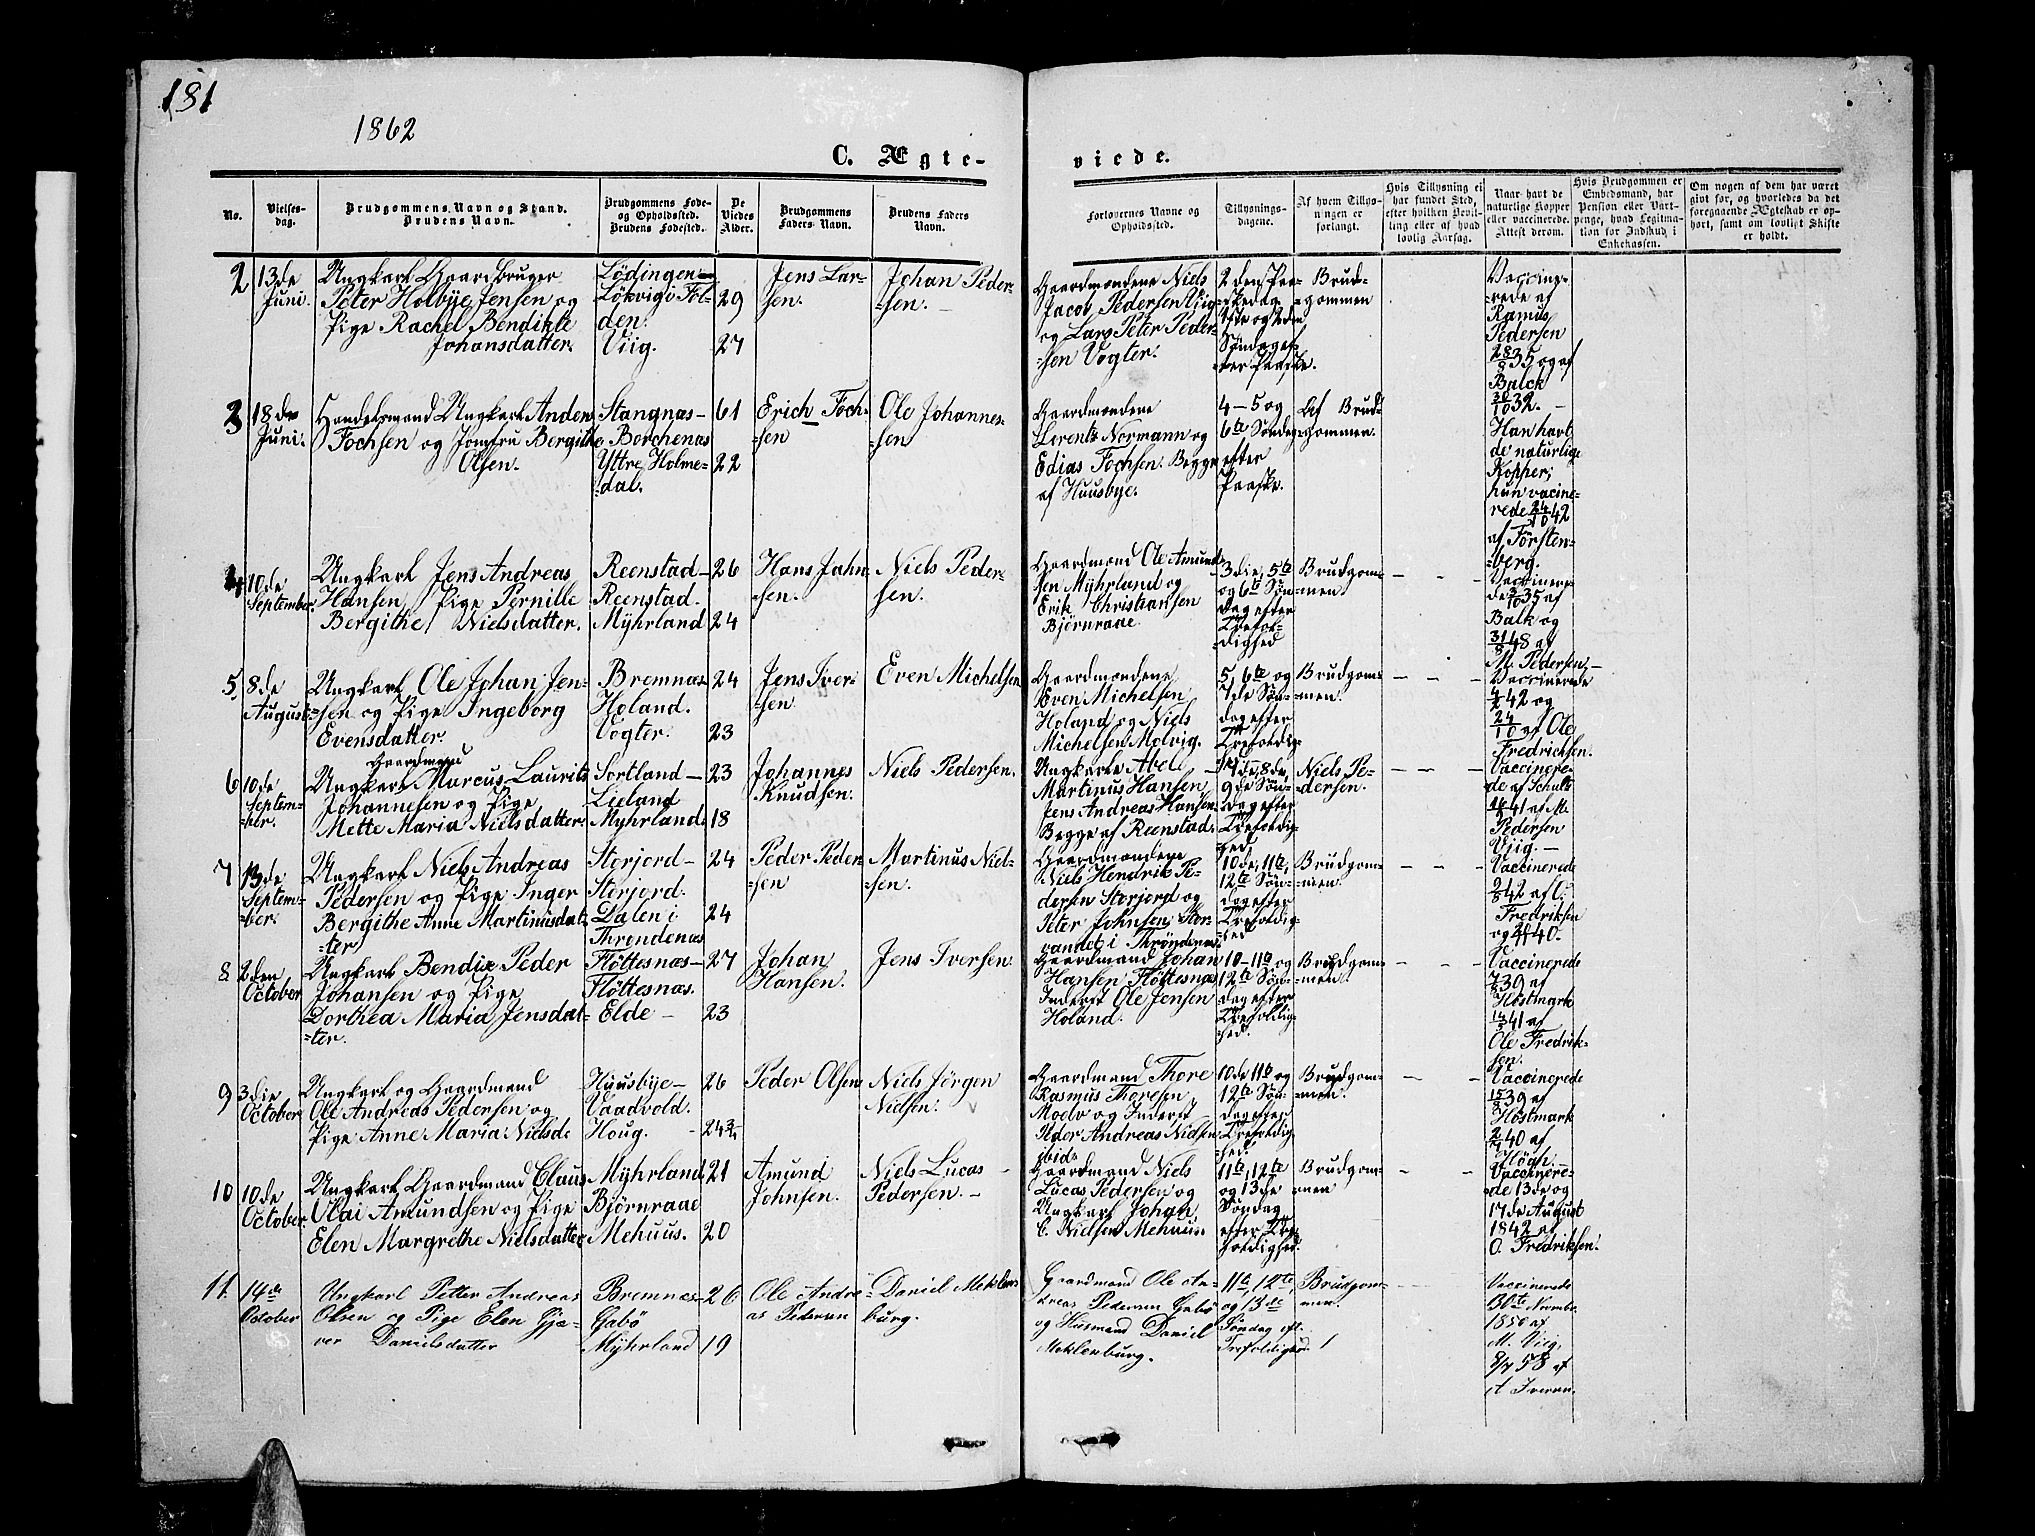 181
1862
C. Ægte-
viede.
No.
Vielses-
dag.
Brudgommens Navn og Stand.
Brudens Navn.
Brudgommens Føde-
og Opholdssted.
Brudens Fødested.
De
Viedes
Alder.
Brudgommens
Faders Navn.
Brudens Faders
Navn.
Forlovernes Navne og
Opholdssted.
Tillysnings-
dagene.
Af hvem Tillys-
ningen er
forlangt.
Hvis Tillysning ei
har fundet Sted,
efter hvilken Bevil-
ling eller af hvad
lovlig Aarsag.
Naar havt de
naturlige Kopper
eller vaccinerede.
Attest derom.
Hvis Brudgommen er
Embedsmand, har
Pension eller Vart-
penge, hvad Legitima-
tion for Indskud i
Enkekassen.
Om nogen af dem har været
givt før, og hvorledes da det
foregaaende Ægteskab er op-
hørt, samt om lovligt Skifte
er holdt.
2
13de
Juni.
Ungkarl Gaardbruger
Peter Holbye Jensen og
Pige Rachel Bendikte
Johansdatter.
Lödingen
Lökvig i Fol-
den.
Viig.
29
27
Jens Lar-
sen.
Johan Peder-
sen.
Gaardmændene Niels
Jacob Pedersen Viig
og Lars Peter Peder-
sen Vogter.
2den Paa-
skedag
1ste og 2den
Söndag ef-
ter Paaske.
Brud-
gommen
Vaccine-
rede af
Ramus
Pedersen
28/8 35 og af
Balck
30/10 32.
3
18de
Juni.
Handelsmand Ungkarl Anders
Fochsen og Jomfru Bergithe
Olsen.
Stangnæs-
Borchenæs
Yttre Holme-
dal.
61
22
Erich Foch-
sen
Ole Johannes-
sen
Gaardmændene
Lorents Normann og
Edias Fochsen. Begge
af Huusbye.
4-5 og
6te Söndag
efter
Paaske.
Af Brud-
gommen.
Han havt
de naturlige
Kopper;
hun vacine-
rede 24/10 42
af Forsten-
berg.
4
10de
September.
Ungkarl Jens Andreas
Hansen, Pige Pernille
Bergithe Nielsdatter.
Reenstad-
Reenstad.
Myhrland
26
24
Hans Jahn-
sen.
Niels Peder-
sen.
Gaardmænd Ole Amund-
sen Myhrland og
Erik Christiansen
Bjørnraae.
3die, 5te
og 6te Søn-
dag efter
Trefol-
dighed
Brudgom-
men.
Vaccinere-
de 2/10 35 af
Balk og
31/8 48 af
M. Pedersen.
5
8de
August
Ungkarl Ole Johan Jen-
sen og Pige Ingeborg
Evensdatter.
Bremnæs
Holand.
Vogter.
24
23
Jens Iver-
sen.
Even Michelsen
Gaardmændene
Even Michelsen
Holand og Niels
Michelsen Molvig.
5, 6te og
7de Søn-
dag efter
Trefoldig-
Brudgom-
men.
Vaccinerede
4/2 42 og
24/10 af Ole
Fredrichsen.
6
10de
Septem-
ber.
Gaardmand
Ungkarl Marcus Laurits
Johannesen og Pige
Mette Maria Nielsdatter
Sortland-
Lieland
Myhrland
23
18
Johannes
Knudsen.
Niels Pedersen.
Ungkarle Abel
Martinus Hansen,
Jens Andreas Hansen
Begge af Reenstad.
7de, 8de,
9de Søn-
dag efter
Trefoldig-
hed
Niels Pe-
dersen.
Vaccinere-
de af Schult
41 af M.
Pedersen
Viig.
7
13de
Septem-
ber.
Ungkarl Niels Andreas
Pedersen og Pige Inger
Bergithe Anne Martinusdat-
ter
Storjord-
Storjord.
Dalen i
Throndenæs
24
24
Peder Peder-
sen
Martinus Niel-
sen.
Gaardmændene
Niels Hendrik Pe-
dersen Storjord og
Peter Johnsen Stor-
vandet i Throndenæs
10de, 11te,
12te Søn-
dag efter
Trefoldig-
hed
Brudgom-
men.
Vaccinerede
9/8 42 af O.
Fredriksen
og 40.
8
2den
October
Ungkarl Bendix Peder
Johansen og Pige
Dorthea Maria Jensdat-
ter.
Fløttesnæs-
Fløttesnæs.
Elde
27
23
Johan
Hansen.
Jens Iversen
Gaardmænd Johan
Hansen Fløttesnæs
Inderst Ole Jensen
Holand.
10-11te og
12te Søn-
dag efter
Trefoldig-
hed.
Brudgom-
men.
Vaccinerede
7/8 39 af
Hostmark
14/5 41 af
Ole Fredrik-
sen.
9
3die
October
Ungkarl og Gaardmand
Ole Andreas Pedersen og
Pige Anne Maria Nielsd.
Huusbye-
Vaadvold.
Houg.
26
24 3/4
Peder Olsen
Niels Jörgen
Nielsen.
Gaardmand Thore
Rasmus Thoresen
Moelv og Inderst
Peder Andreas Nielsen
ibid.
10de 11te og
12te Søn-
dag efter
Trefoldig-
hed.
Brudgom-
men.
Vaccinerede
15/8 39 af
Hostmark
40 af
Høgh.
10
10de
October.
Ungkarl Gaardmand Claus
Olai Amundsen og Pige
Elen Margrethe Nielsdatter
Myhrland
Bjørnraae
Mehuus.
21
20
Amund
Johnsen.
Niels Lucas
Pedersen.
Gaardmand Niels
Lucas Pedersen og
Ungkarl Johan
C. Nielsen Mehuus.
11te, 12te
og 13de
Söndag
efter Tre-
foldighed.
Brudgom-
men
Vaccinere-
de 13de og
17de August
1842 af
O. Fredriksen.
11.
14de
October
Ungkarl Petter Andreas
Olsen og Pige Elen Gjæ-
ver Danielsdatter
Bremnæs-
Gabö
Myhrland
26
19
Ole Andre-
as Pedersen
Daniel Meklen-
burg.
Gaardmand Ole An-
dreas Pedersen Gabö
og Husmand Daniel
Meklenburg.
11te, 12te,
og 13de
Söndag eft.
Trefoldighed
Brudgom-
men.
Vaccinerede
30te Novmbr.
1850 af
M. Viig,
8/7 58 af
A Iversen.